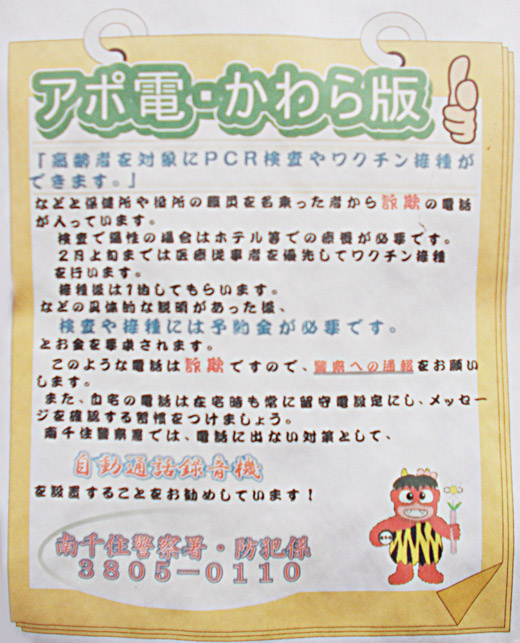 アポ電・かわら版
「高齢者を対象にPCR検査やワクチン接種が
できます。」
などと保健所や役所の職員を名乗った者から詐欺の電話
が入っています。
検査で陽性の場合はホテル等での療養が必要です。
2月上旬までは医療従事者を優先してワクチン接種
を行います。
接種後は1泊してもらいます。
などの具体的な説明があった後、
検査や接種には予約金が必要です。
とお金を要求されます。
このような電話は詐欺ですので、警察への通報をお願い
します。
また、自宅の電話は在宅時も常に留守電設定にし、メッセー
ジを確認する習慣をつけましょう。
南千住警察署では、電話に出ない対策として、
自動通話録音機
を設置することをお勧めしています!
南千住警察署・防犯係
3805-0110